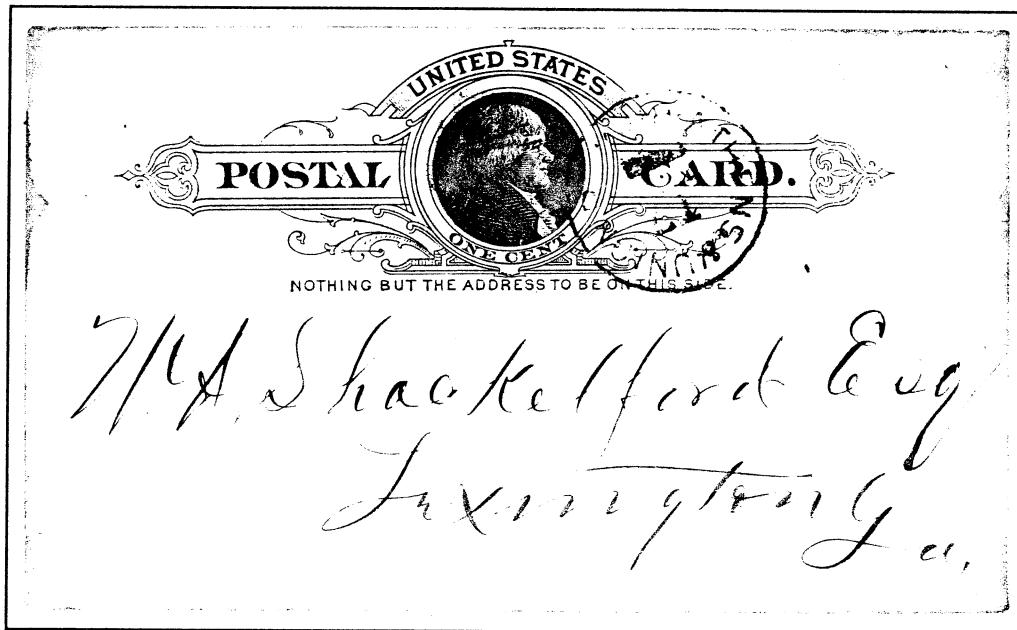 UNITED STATES
POSTAL CARD.
ONE CENT
NOTHING BUT THE ADDRESS TO BE ON THIS SIDE.
Shackelford Esq
Lexington Ga.